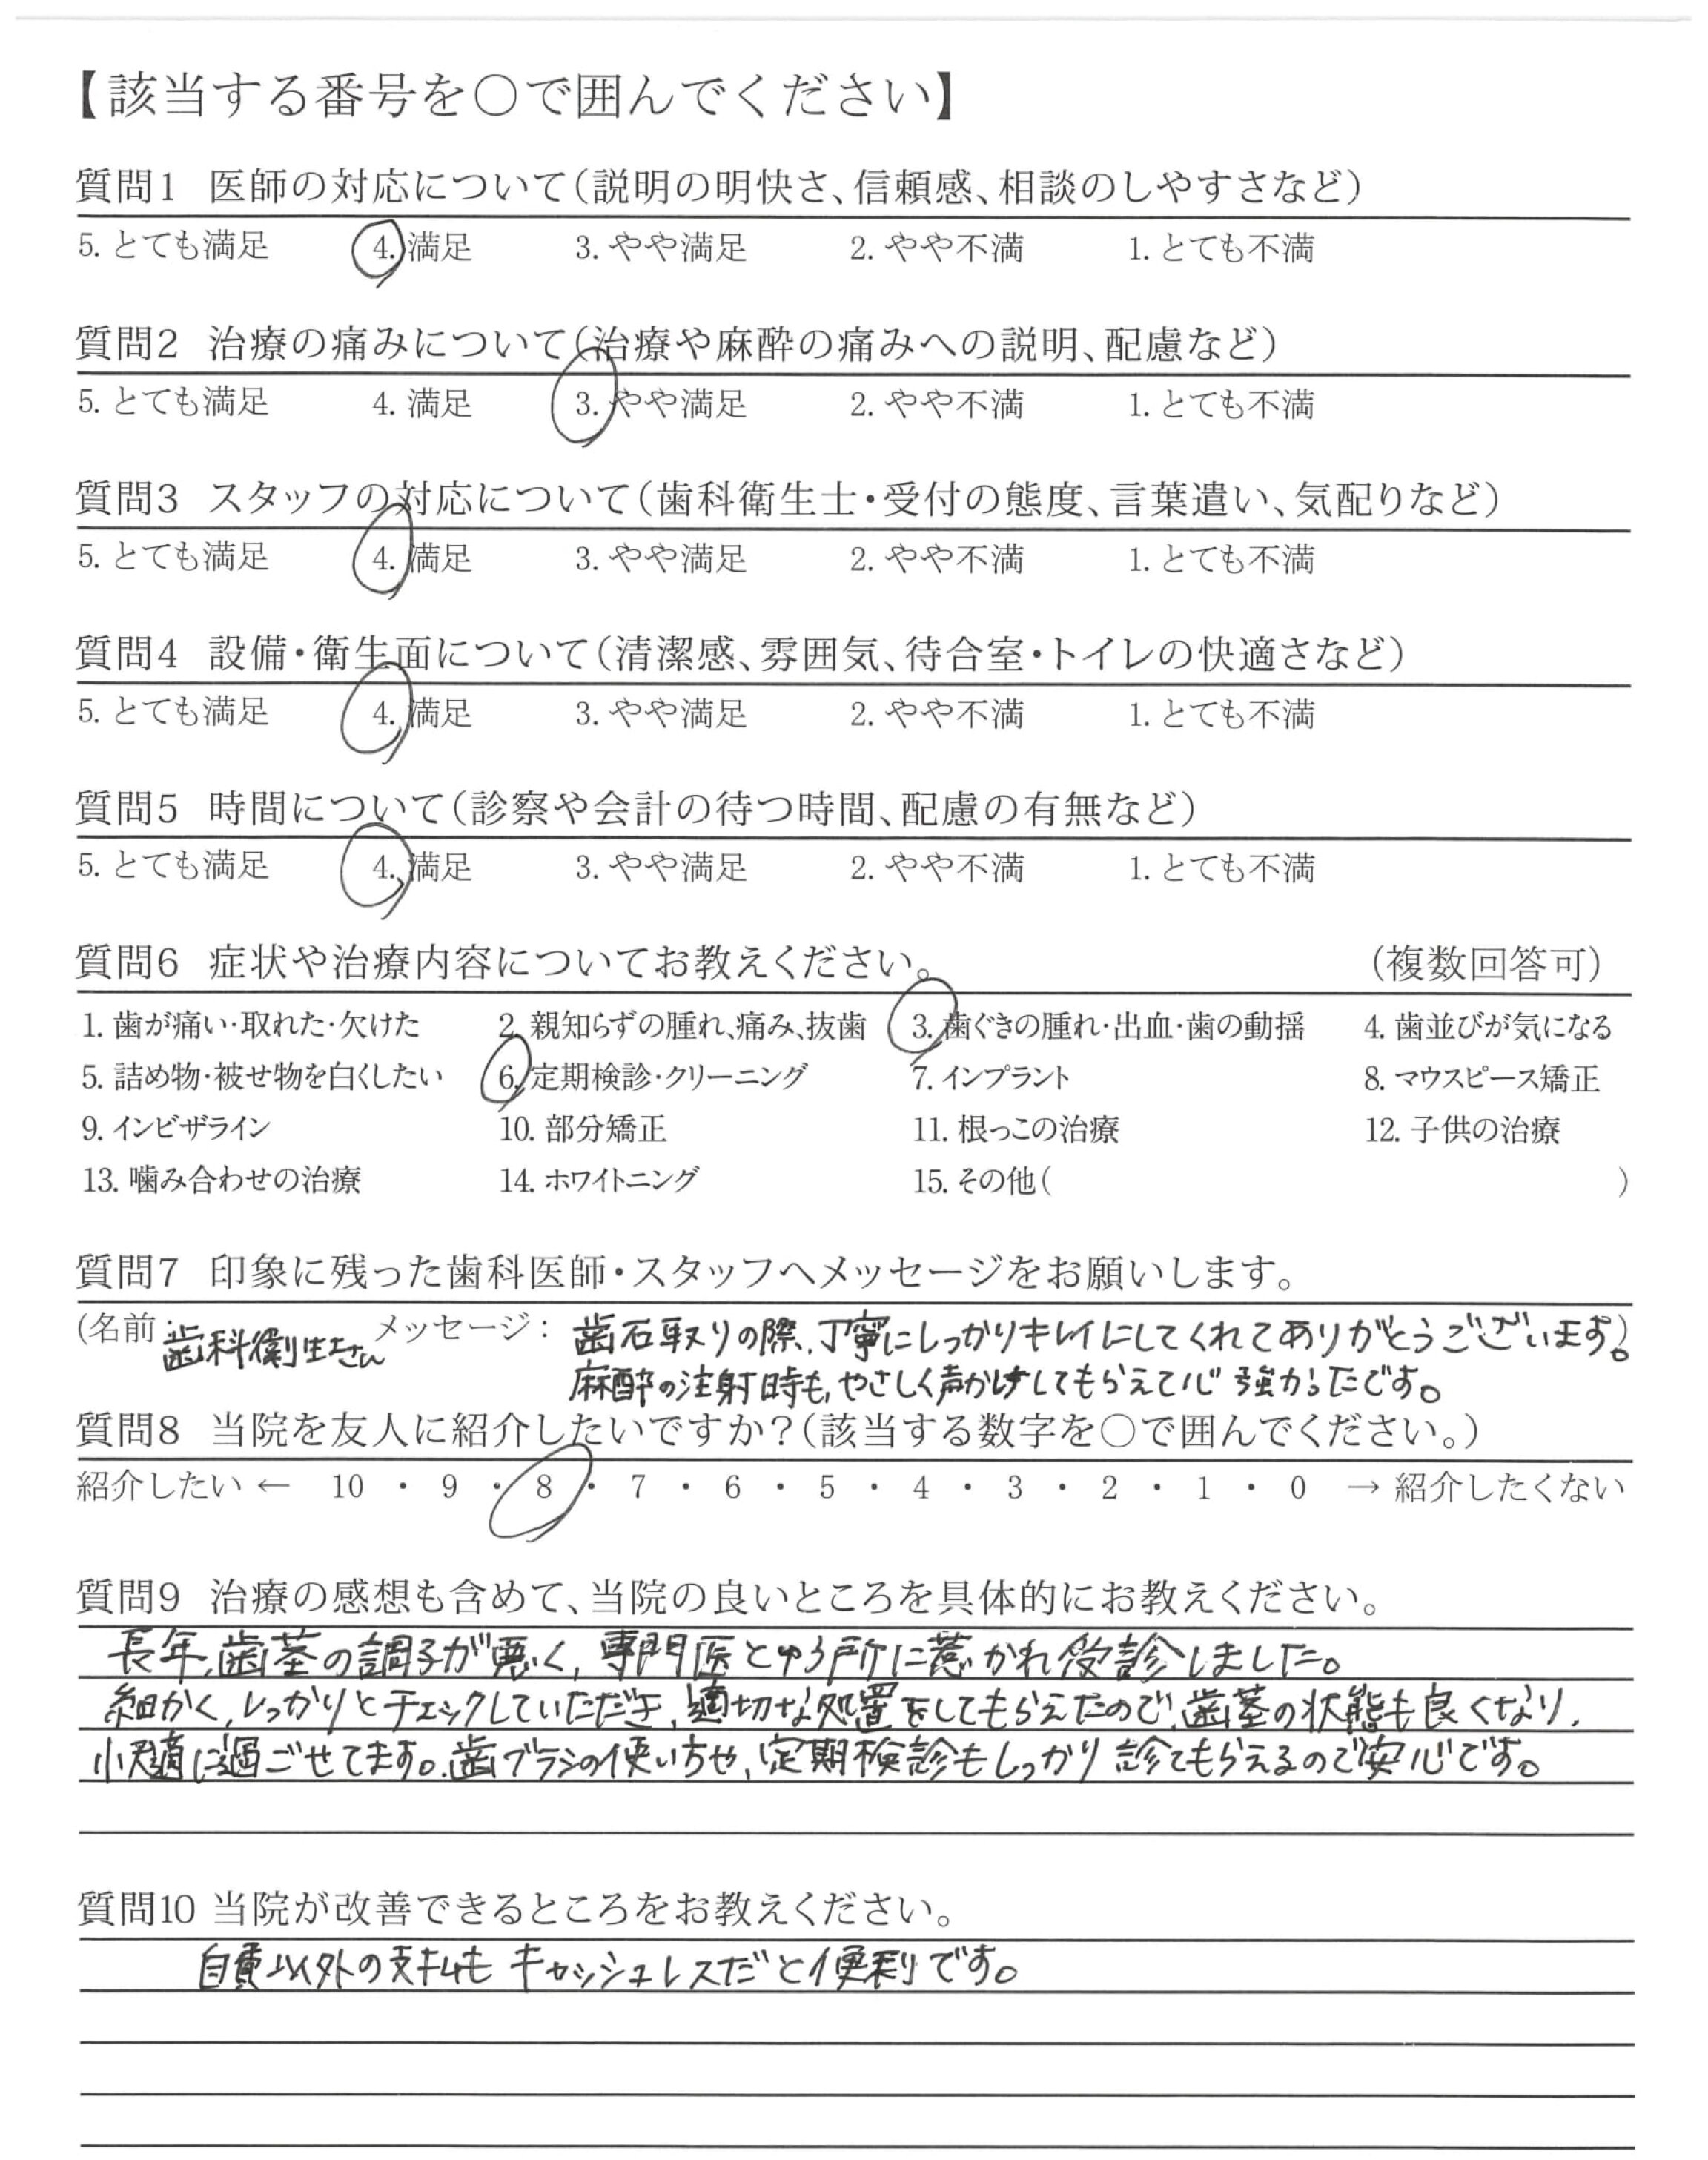 【該当する番号を○で囲んでください】
質問1 医師の対応について（説明の明快さ、信頼感、相談のしやすさなど）
5. とても満足 4. 満足 3. やや満足 2. やや不満 1. とても不満
質問2 治療の痛みについて（治療や麻酔の痛みへの説明、配慮など）
5. とても満足 4. 満足 3. やや満足 2. やや不満 1. とても不満
質問3 スタッフの対応について（歯科衛生士・受付の態度、言葉遣い、気配りなど）
5. とても満足 4. 満足 3. やや満足 2. やや不満 1. とても不満
質問4 設備・衛生面について（清潔感、雰囲気、待合室・トイレの快適さなど）
5. とても満足 4. 満足 3. やや満足 2. やや不満 1. とても不満
質問5 時間について（診察や会計の待つ時間、配慮の有無など）
5. とても満足 4. 満足 3. やや満足 2. やや不満 1. とても不満
質問6 症状や治療内容についてお教えください。 （複数回答可）
1. 歯が痛い・取れた・欠けた 2. 親知らずの腫れ、痛み、抜歯 3. 歯ぐきの腫れ・出血・歯の動揺 4. 歯並びが気になる
5. 詰め物・被せ物を白くしたい 6. 定期検診・クリーニング 7. インプラント 8. マウスピース矯正
9. インビザライン 10. 部分矯正 11. 根っこの治療 12. 子供の治療
13. 噛み合わせの治療 14. ホワイトニング 15. その他（ ）
質問7 印象に残った歯科医師・スタッフへメッセージをお願いします。
（名前：歯科衛生士さん メッセージ：歯石取りの際、丁寧にしっかりキレイにしてくれてありがとうございます。）
麻酔の注射時も、やさしく声かけしてもらえて心強かったです。
質問8 当院を友人に紹介したいですか？（該当する数字を○で囲んでください。）
紹介したい ← 10 ・ 9 ・ 8 ・ 7 ・ 6 ・ 5 ・ 4 ・ 3 ・ 2 ・ 1 ・ 0 → 紹介したくない
質問9 治療の感想も含めて、当院の良いところを具体的にお教えください。
長年、歯茎の調子が悪く、専門医とゆう所に惹かれ受診しました。
細かく、しっかりとチェックしていただき、適切な処置をしてもらえたので、歯茎の状態も良くなり、
快適に過ごせてます。歯ブラシの使い方や、定期検診もしっかり診てもらえるので安心です。
質問10 当院が改善できるところをお教えください。
自費以外の支払もキャッシュレスだと便利です。